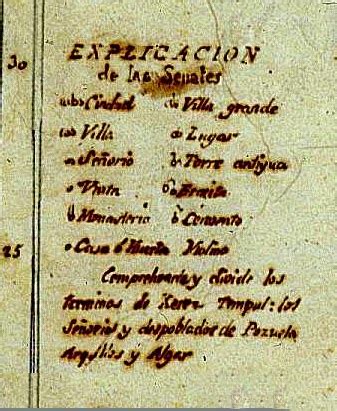 30
EXPLICACION
de las Señales
Ciudad Villa grande
Villa Lugar
Señorio Torre antigua
Venta Ermita
Monasterio Convento
25
Casa d Huerta Molino
Comprehende y divide los
terminos de Xerez Tempul: los
Señorios y despoblados de Pozuela
y Algar